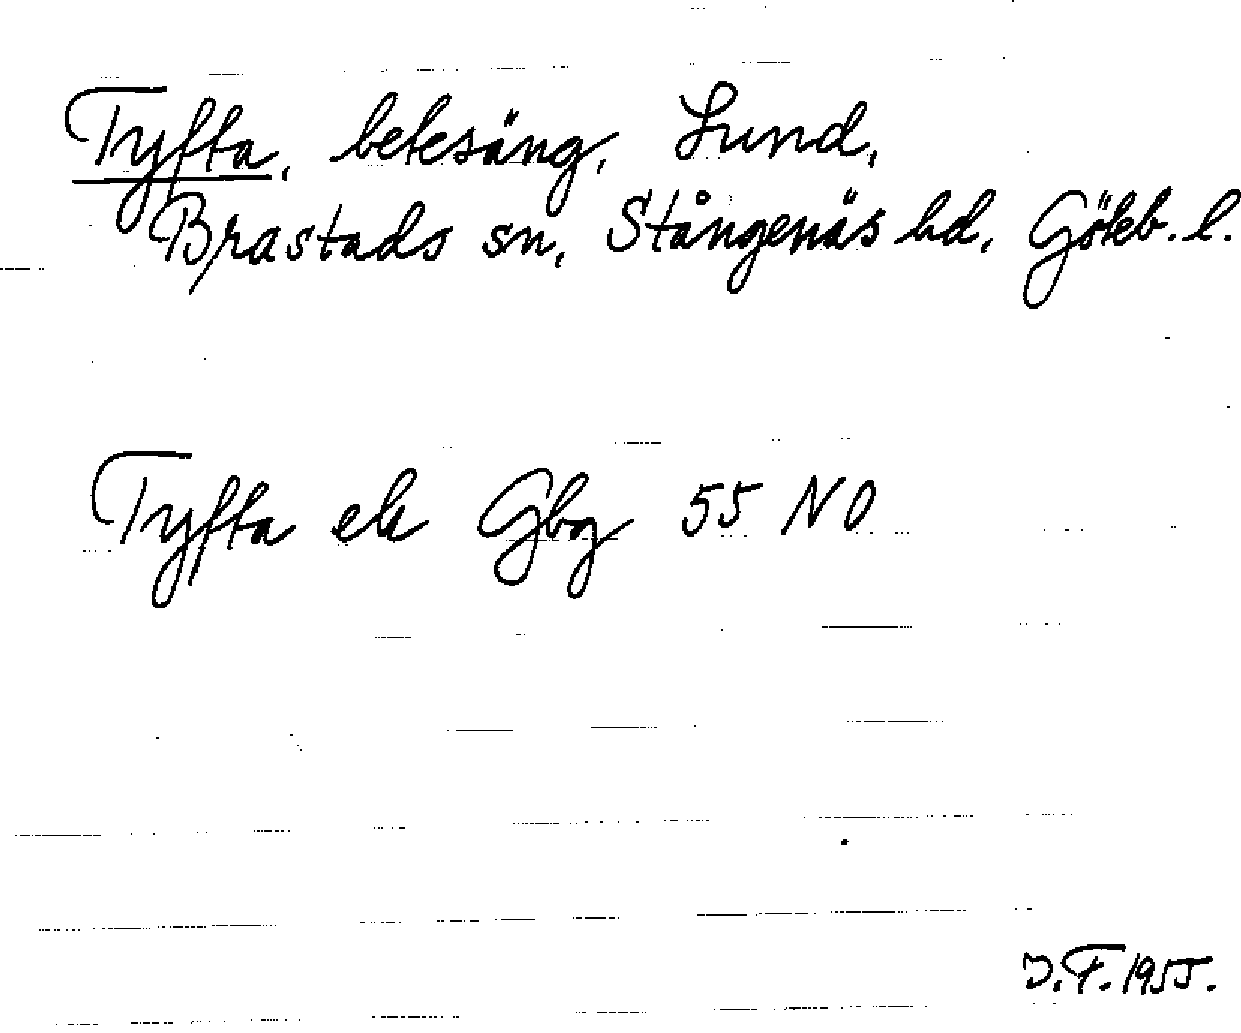 Tyfta, betesäng, Lund,
Brastads sn, Stångenäs hd, Göteb. l.
Tyfta ek Gbg 55 NO
J.F. 1955.